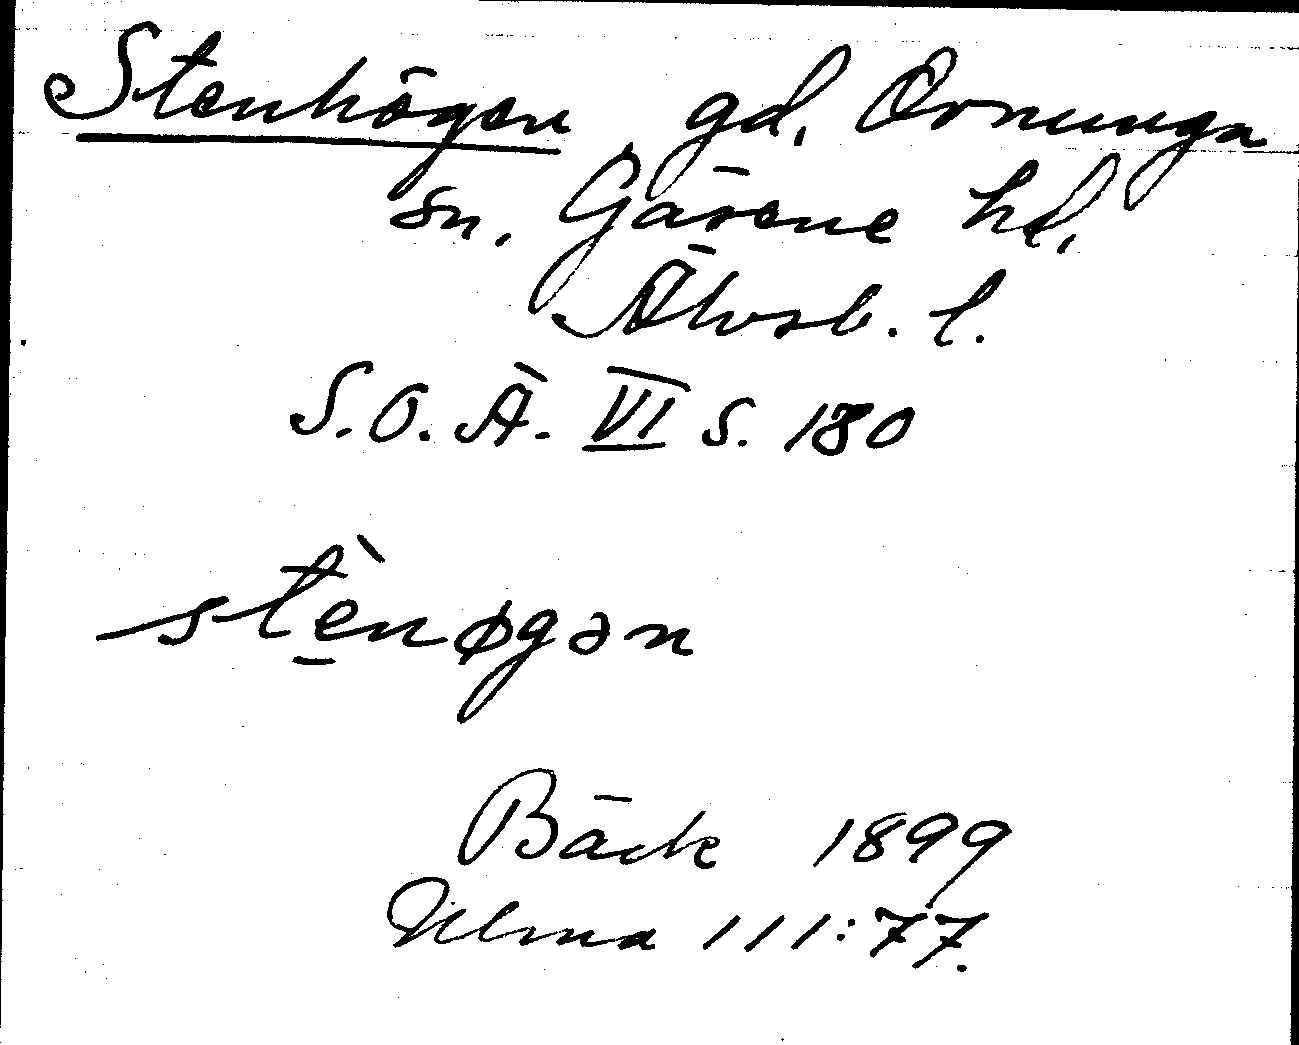 Stenhögen gd. Ornunga
sn. Gäsene hd.
Älvsb. l.
S.O.Ä. VI s. 180
stèn̠øgən
Bäck 1899
Ulma 111:77.